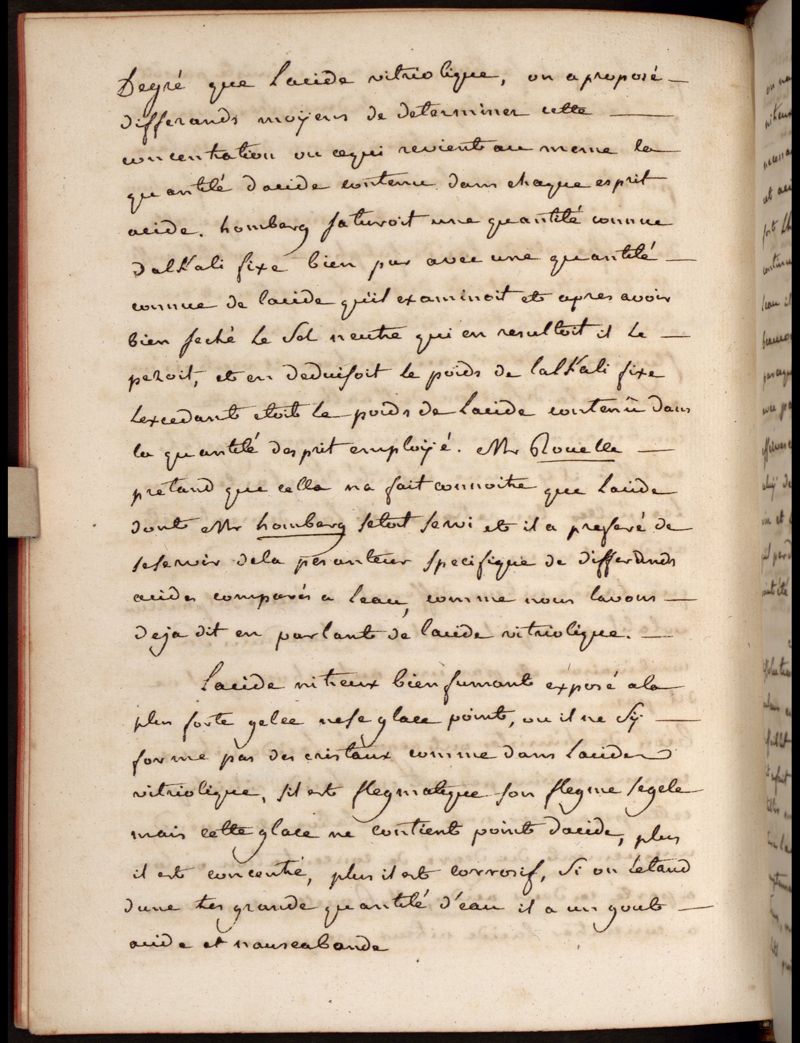 Degré que Lacide vitriolique, on a proposé —
differands moÿens de determiner cette —
concentration ou cequi revient au meme la
quantité dacide contenu dans chaque esprit
acide. homberg saturoit une quantité connue
dalKali fixe bien pur avec une quantité —
connue de lacide qu'il examinoit et apres avoir
bien seché Le Sel neutre qui en resultoit il Le —
pezoit, et en deduisoit le poids de lalKali fixe
Lexcedant etoit Le poids de Lacide contenû dans
la quantité desprit employé. Mr Rouelle —
pretand que cella na fait connoitre que Lacide
dont Mr homberg setoit servi et il a preferé de
seservir dela pesanteur specifique de differands
acides comparés a Leau, comme nous lavons —
deja dit en parlant de lacide vitriolique. —
Lacide nitreux bien fumant exposé ala
plus forte gelee nese glace point, ou il ne Sÿ —
forme pas des cristaux comme dans Lacide
vitriolique, sil est flegmatique son flegme segele
mais cette glace ne contient point dacide, plus
il est concentré, plus il est corrosif, Si on Letand
dune tres grande quantité d'eau il a un gout —
acide et nauseabonde